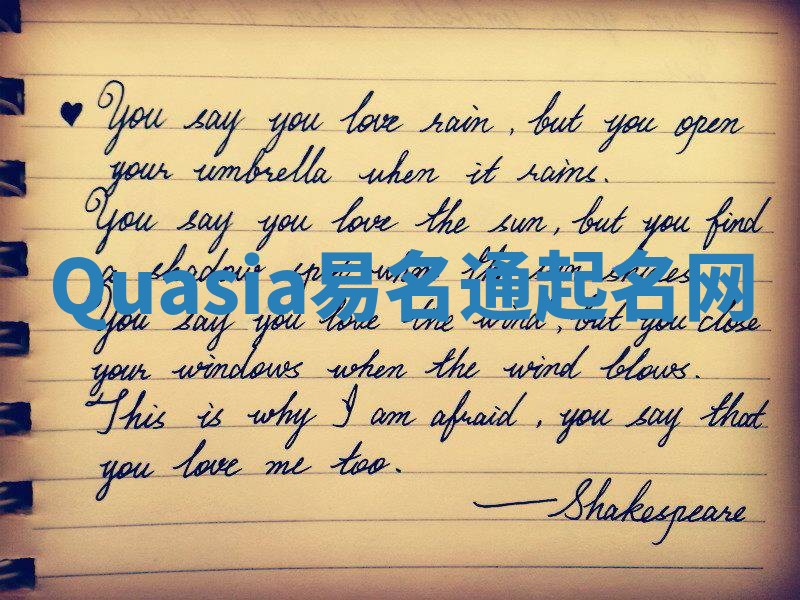 You say you love rain, but you open
your umbrella when it rains.
You say you love the sun, but you find
a shadow spot when the sun shines.
Quasia易名通起名网
You say you love the wind, but you close
your windows when the wind blows.
This is why I am afraid, you say that
you love me too.
—Shakespeare